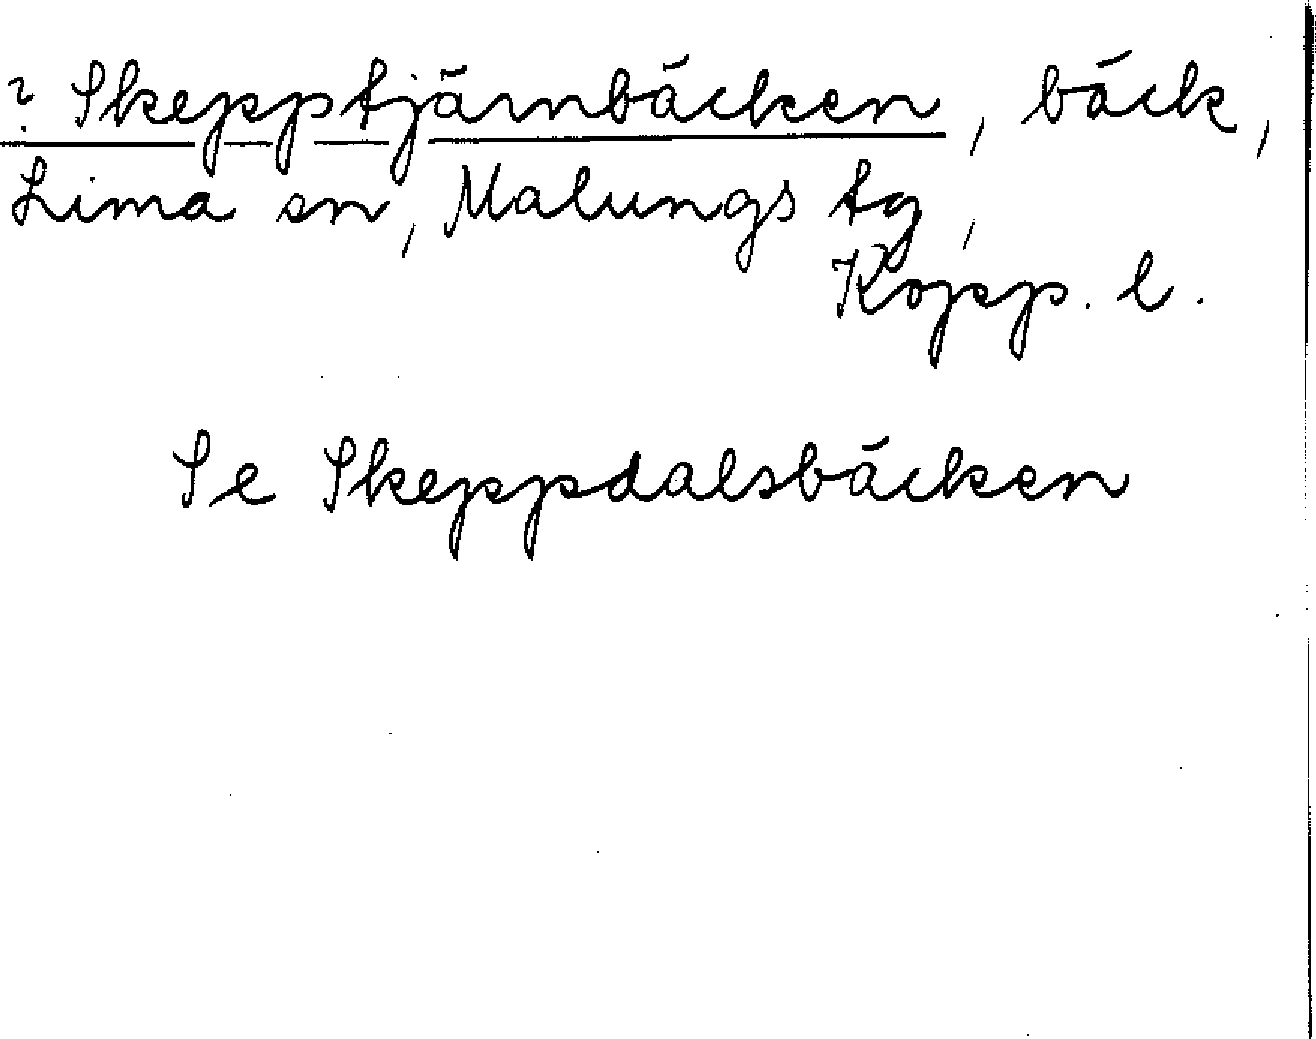 ? Skepptjärnbäcken, bäck,
Lima sn, Malungs tg,
Kopp. l.
Se Skeppdalsbäcken